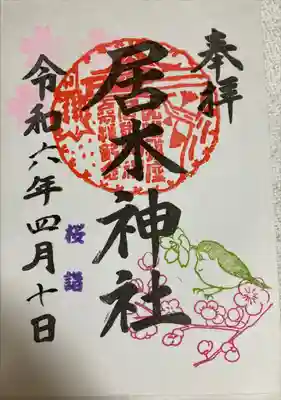 奉拝
居木神社
令和六年四月十日
桜詣